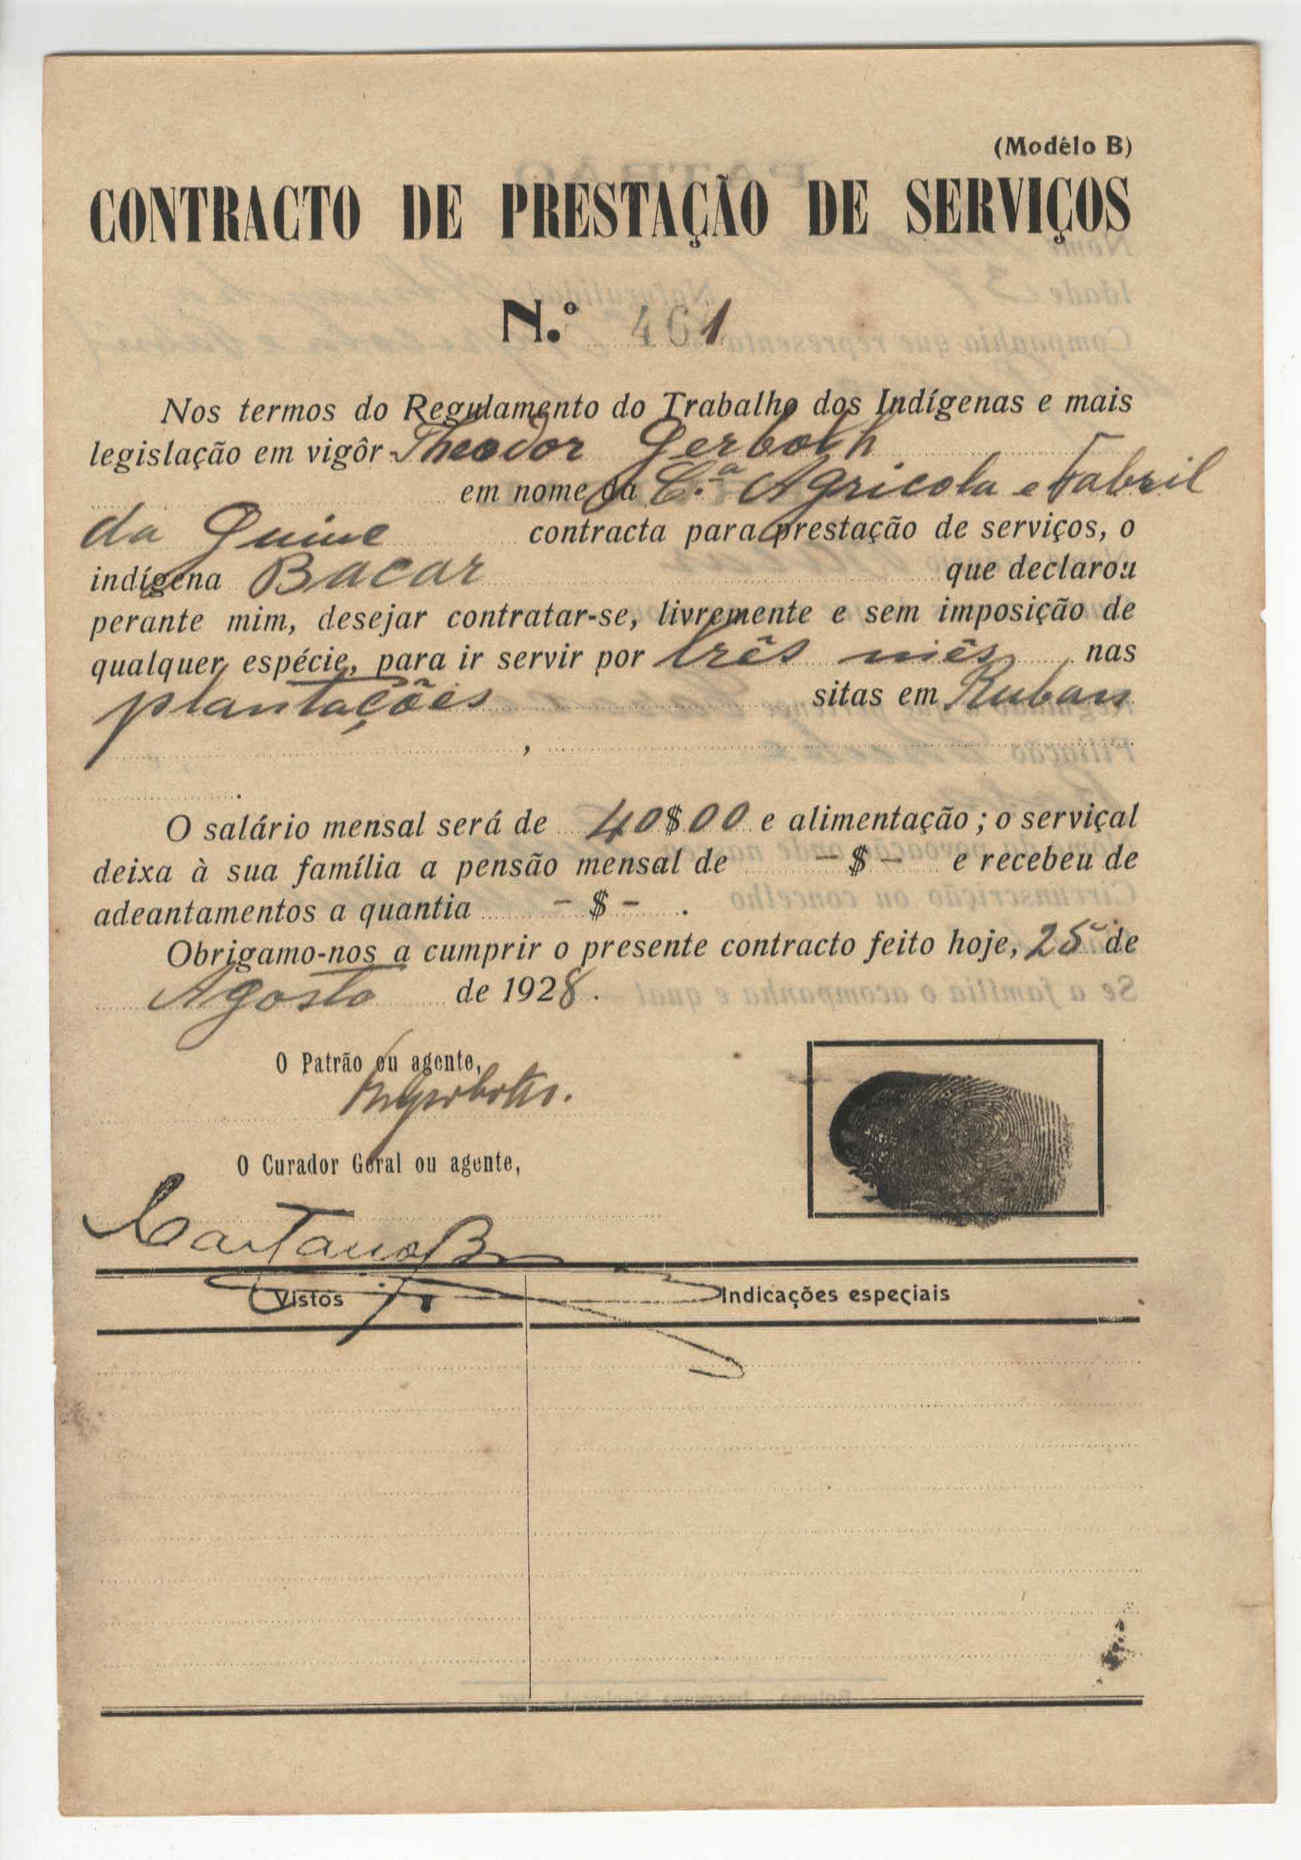 (Modêlo B)
CONTRACTO DE PRESTAÇÃO DE SERVIÇOS
N.º 461
Nos termos do Regulamento do Trabalho dos Indígenas e mais
legislação em vigôr Theodor Gerboth
em nome da C.ª Agricola e Fabril
da Guiné contracta para prestação de serviços, o
indígena Bacar que declarou
perante mim, desejar contratar-se, livremente e sem imposição de
qualquer espécie, para ir servir por três mês nas
plantações sitas em Ruban
,
.
O salário mensal será de 40$00 e alimentação; o serviçal
deixa à sua família a pensão mensal de -$- e recebeu de
adeantamentos a quantia -$- .
Obrigamo-nos a cumprir o presente contracto feito hoje, 25 de
Agosto de 1928.
O Patrão ou agente,
O Curador Geral ou agente,
Vistos
Indicações especiais